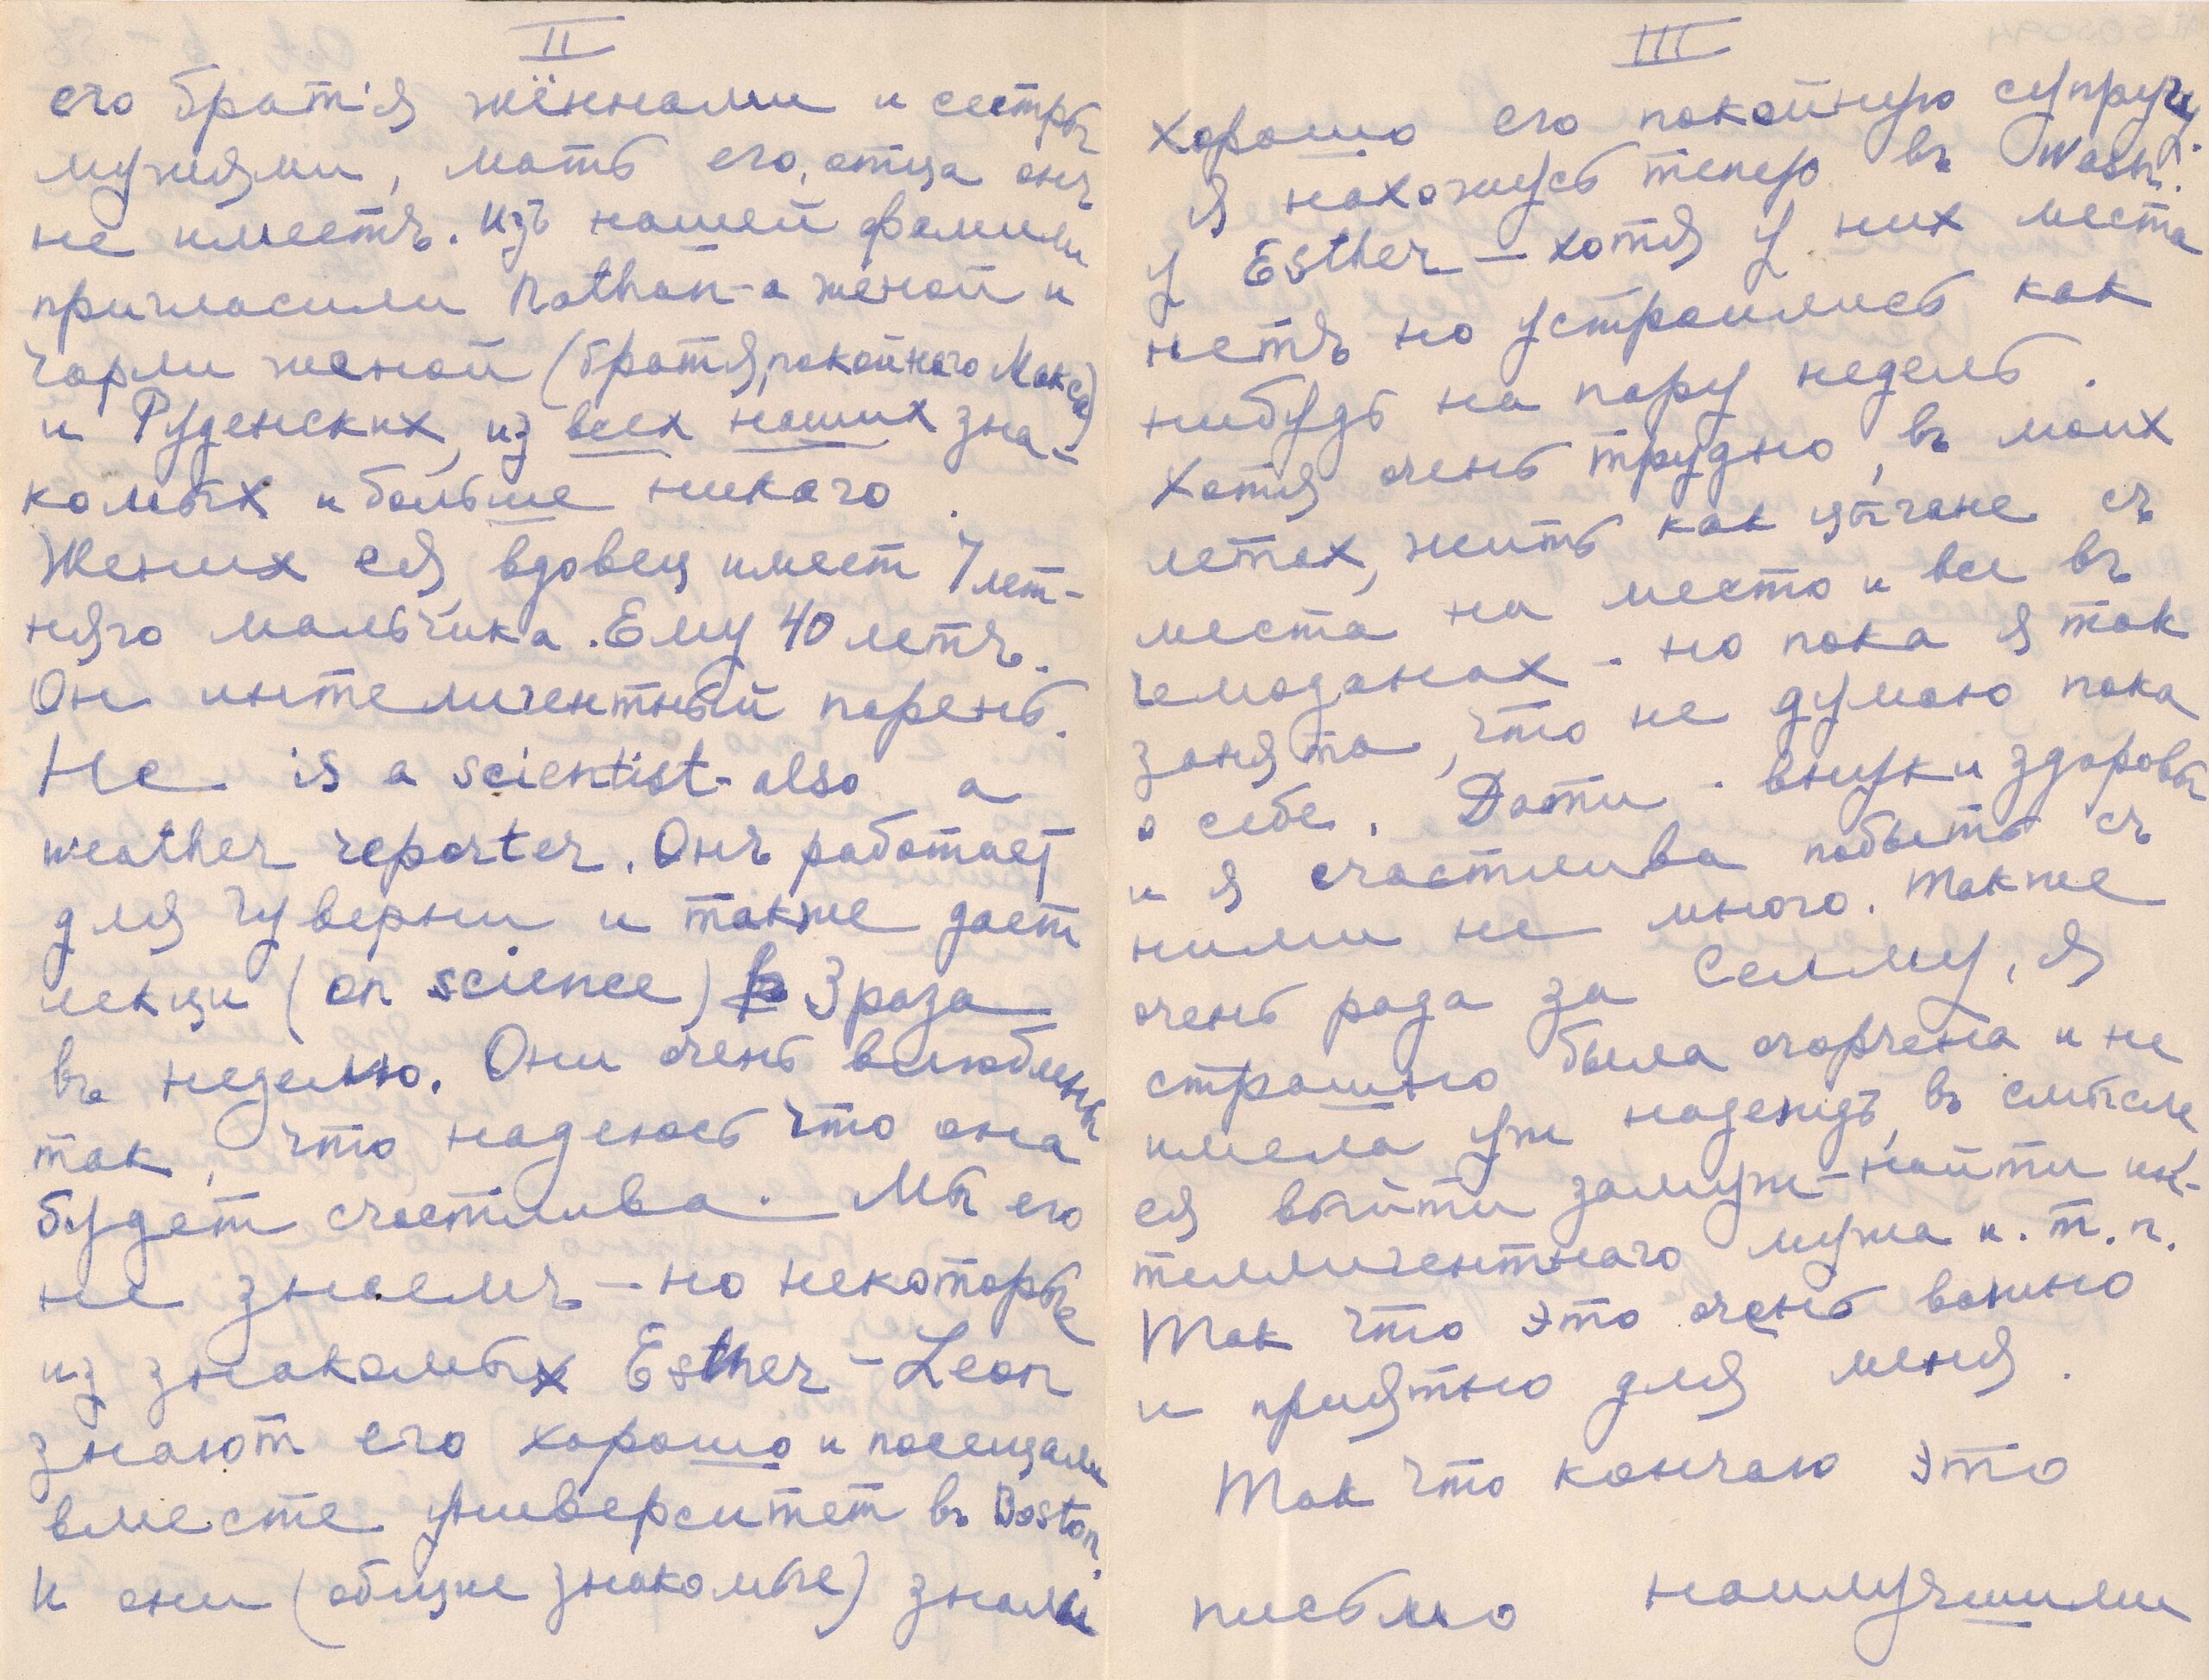 II
его братія жённами и сестры
мужьями, мать его, отца онъ
не имеетъ. Изъ нашей фамили
пригласили Nathan-а женой и
Чарли женой (братья, покойного Макса)
и Руденских, из всех наших зна-
комых и больше никого.
Жених ея, вдовец имеет 7 лет-
няго мальчика. Ему 40 летъ.
Он интелигентный парень.
He is a scientist - also a
weather reporter. Онъ работает
для гуверни и также дает
лекци (on science) 3 раза
въ неделю. Они очень влюблены
так, что надеюсь что она
будет счастлива. Мы его
не знаемъ - но некоторые
из знакомых Esther - Leon
знают его хорошо и посещали
вместе университет въ Boston.
И они (общие знакомые) знали
III
хорошо его покойную супругу.
Я нахожусь теперь въ Wash.
у Esther - хотя у них места
нетъ но устроились как
нибудь на пару недель.
Хотя очень трудно, въ моих
летах, жить как цыгане съ
места на место и все въ
чемоданах - но пока я так
занята, что не думаю пока
о себе. Дети - внуки здоровы
и я счастлива побыть съ
ними не много. Также
очень рада за Селму, я
страшно была огорчена и не
имела уж надежд, въ смысле
ея выйти замуж - найти ин-
теллигентнаго мужа и. т. п.
Так что это очень важно
и приятно для меня.
Так что кончаю это
письмо наилучшими